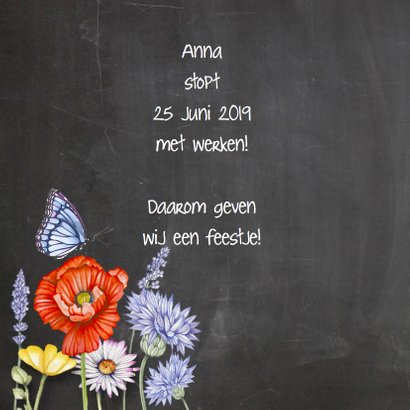 Anna
stopt
25 Juni 2019
met werken!
Daarom geven
wij een feestje!